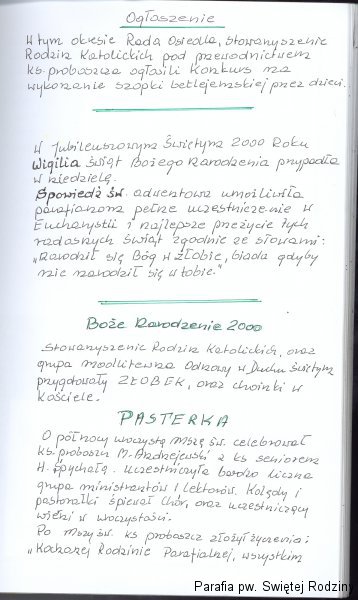 Ogłoszenie
W tym okresie Rada Osiedla, Stowarzyszenie
Rodzin Katolickich pod przewodnictwem
ks. proboszcza ogłosili konkurs na
wykonanie szopki betlejemskiej przez dzieci.
W Jubileuszowym Świętym 2000 Roku
Wigilia Świąt Bożego Narodzenia przypadła
w niedzielę.
Spowiedź św. adwentowa umożliwiła
parafianom pełne uczestniczenie w
Eucharystii i najlepsze przeżycie tych
radosnych świąt zgodnie ze słowami:
„Narodził się Bóg w żłobie, biada gdyby
nie narodził się w tobie."
Boże Narodzenie 2000
Stowarzyszenie Rodzin Katolickich, oraz
grupa modlitewna Odnowy w Duchu Świętym
przygotowały ŻŁÓBEK, oraz choinki w
kościele.
PASTERKA
O północy uroczystą mszę św. celebrował
ks. proboszcz M. Andrzejewski z ks. seniorem
H. Spychałą. Uczestniczyła bardzo liczna
grupa ministrantów i lektorów. Kolędy i
pastorałki śpiewał chór, oraz uczestniczący
wierni w uroczystości.
Po Mszy św. ks. proboszcz złożył życzenia:
„Kochanej Rodzinie Parafialnej, wszystkim
Parafia pw. Swiętej Rodziny